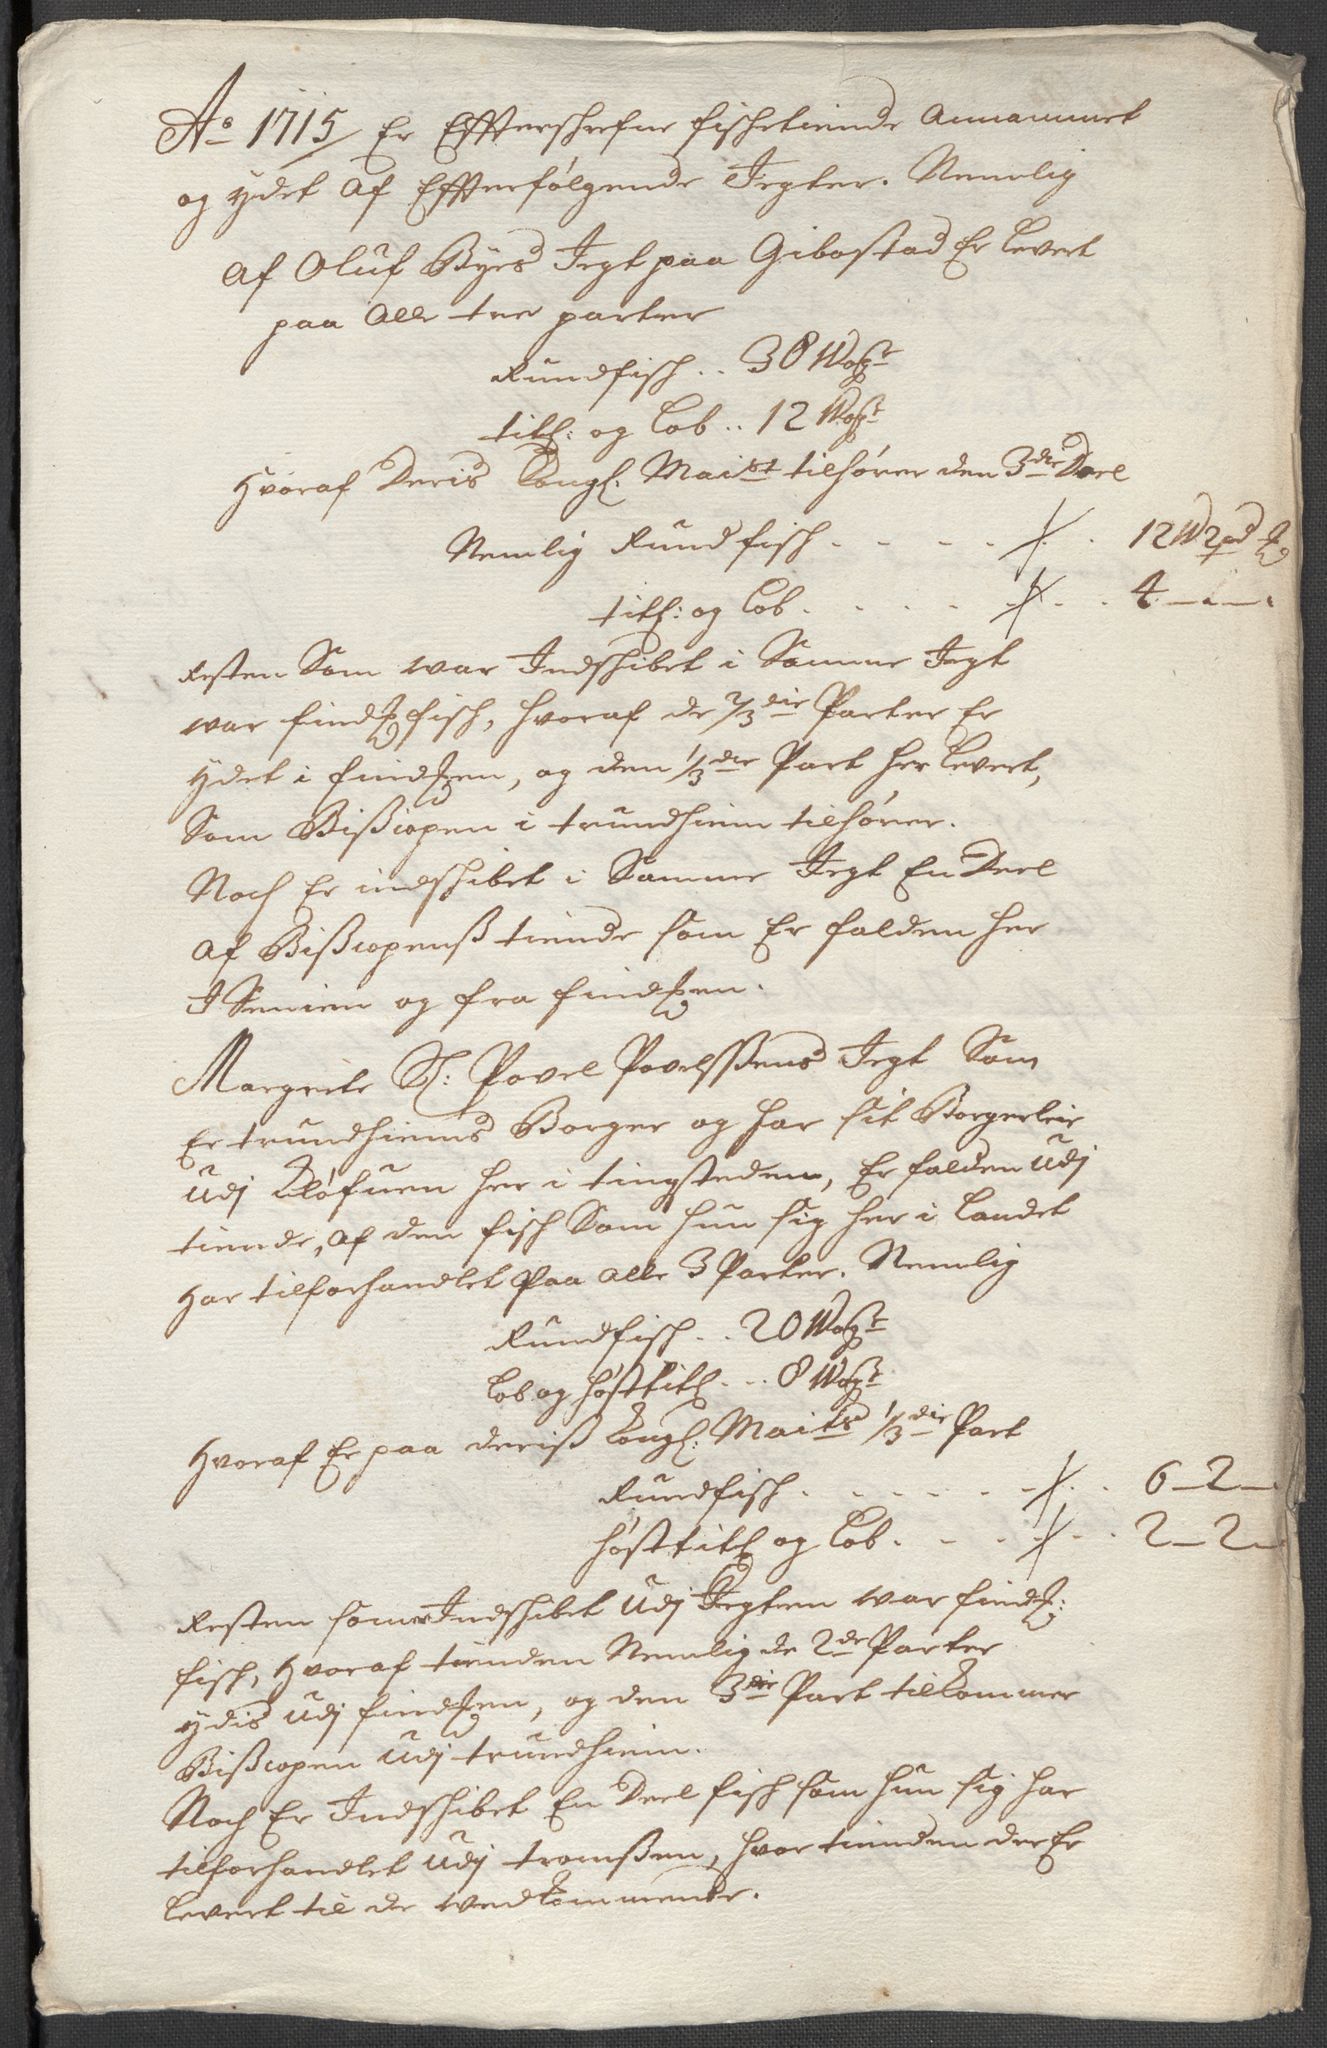 Ao 1715 Er Effterskrefne fischetiende Annammet
og ydet Af Effterfølgende Jegter. Nemlig
Af Oluf Byes Jegt paa Gibostad Er Levert
paa Alle tre parter
Rundfisch .. 38 Wog
titl: og Lob .. 12 Wog
Hvoraf Deris Kongl. Maist tilhører den 3die Deel
Nemlig Rundfisch . . . . . 12 W 2 pd
titl: og Lob . . . . . 4 — " — "
Resten Som war Indschibet i Samme Jegt
war find fisch, hvoraf de 2/3die Parter Er
ydet i find en, og den 1/3die Part her Levert,
Som Bißcopen i trundhiem tilhører.
Noch Er indschibet i Samme Jegt En Deel
Af Bißcopenß tiende som Er falden her
I Senien og fra find en.
Margrete Sl: Povel Povelssens Jegt Som
Er trundhiems Borger og har sit Borgerleie
Udj Kløfuen her i tingsteden, Er falden Udj
tiende, Af den fisch Som hun sig her i Landet
har tilforhandlet Paa Alle 3 Parter. Nemlig
Rundfisch . . 20 Wog
Lob og høsttitl . . . 8 Wog
Hvoraf Er paa deriß Kongl: Maits 1/3die Part
Rundfisch . . . . . . . 6 — 2 —
høsttitl og Lob . . . . . 2 — 2 —
Resten som Indschibet Udj Jegten war find :
fisch, Hvoraf tienden Nemlig de 2de Parter
ydis Udj find en, og den 3die Part tilkommer
Bißcopen Udj trundhiem.
Noch Er Indschibet En Deel fisch som hun sig har
tilforhandlet Udj tromßen, hvor tienden der Er
Levert til de wedkommende.